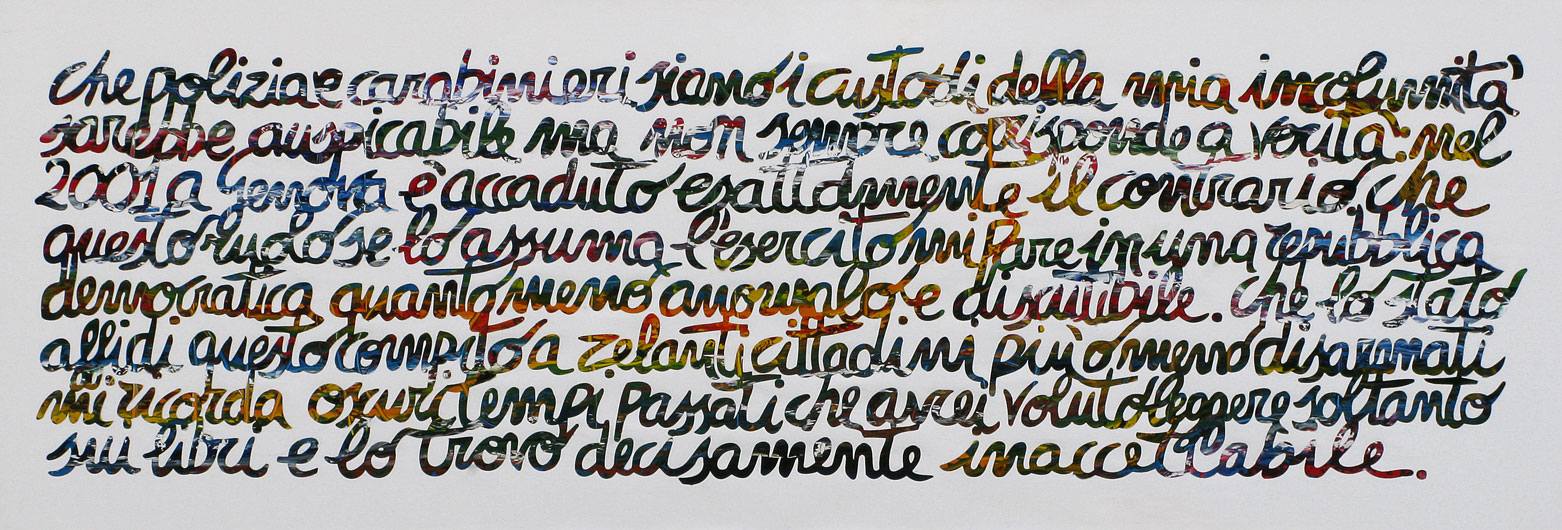 che polizia e carabinieri siano i custodi della mia incolumità
sarebbe auspicabile ma non sempre corrisponde a verità. nel
2001 a genova è accaduto esattamente il contrario. che
questo ruolo se lo assuma l'esercito mi pare in una repubblica
democratica quanto meno anomalo e discutibile. che lo stato
affidi questo compito a zelanti cittadini più o meno disarmati
mi ricorda oscuri tempi passati che avrei voluto leggere soltanto
sui libri e lo trovo decisamente inaccettabile.